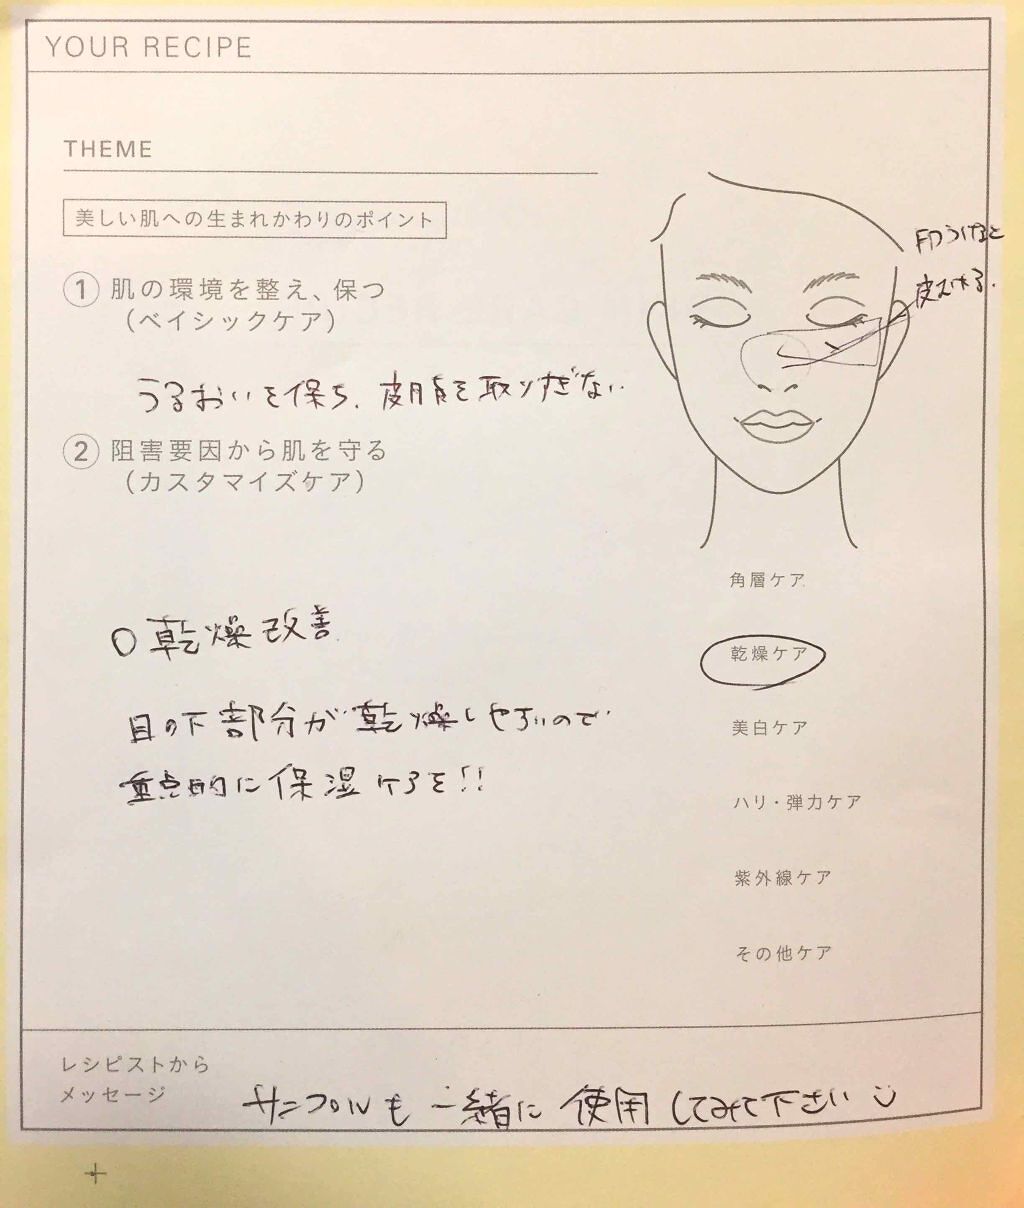 YOUR RECIPE
THEME
美しい肌への生まれかわりのポイント
① 肌の環境を整え、保つ
（ベイシックケア）
うるおいを保ち、皮脂を取りすぎない
② 阻害要因から肌を守る
（カスタマイズケア）
○乾燥改善
目の下部分が乾燥しやすいので
重点的に保湿ケアを!!
FDうけると
皮むける.
角層ケア
乾燥ケア
美白ケア
ハリ・弾力ケア
紫外線ケア
その他ケア
レシピストから
メッセージ
サンプルも一緒に使用してみて下さい